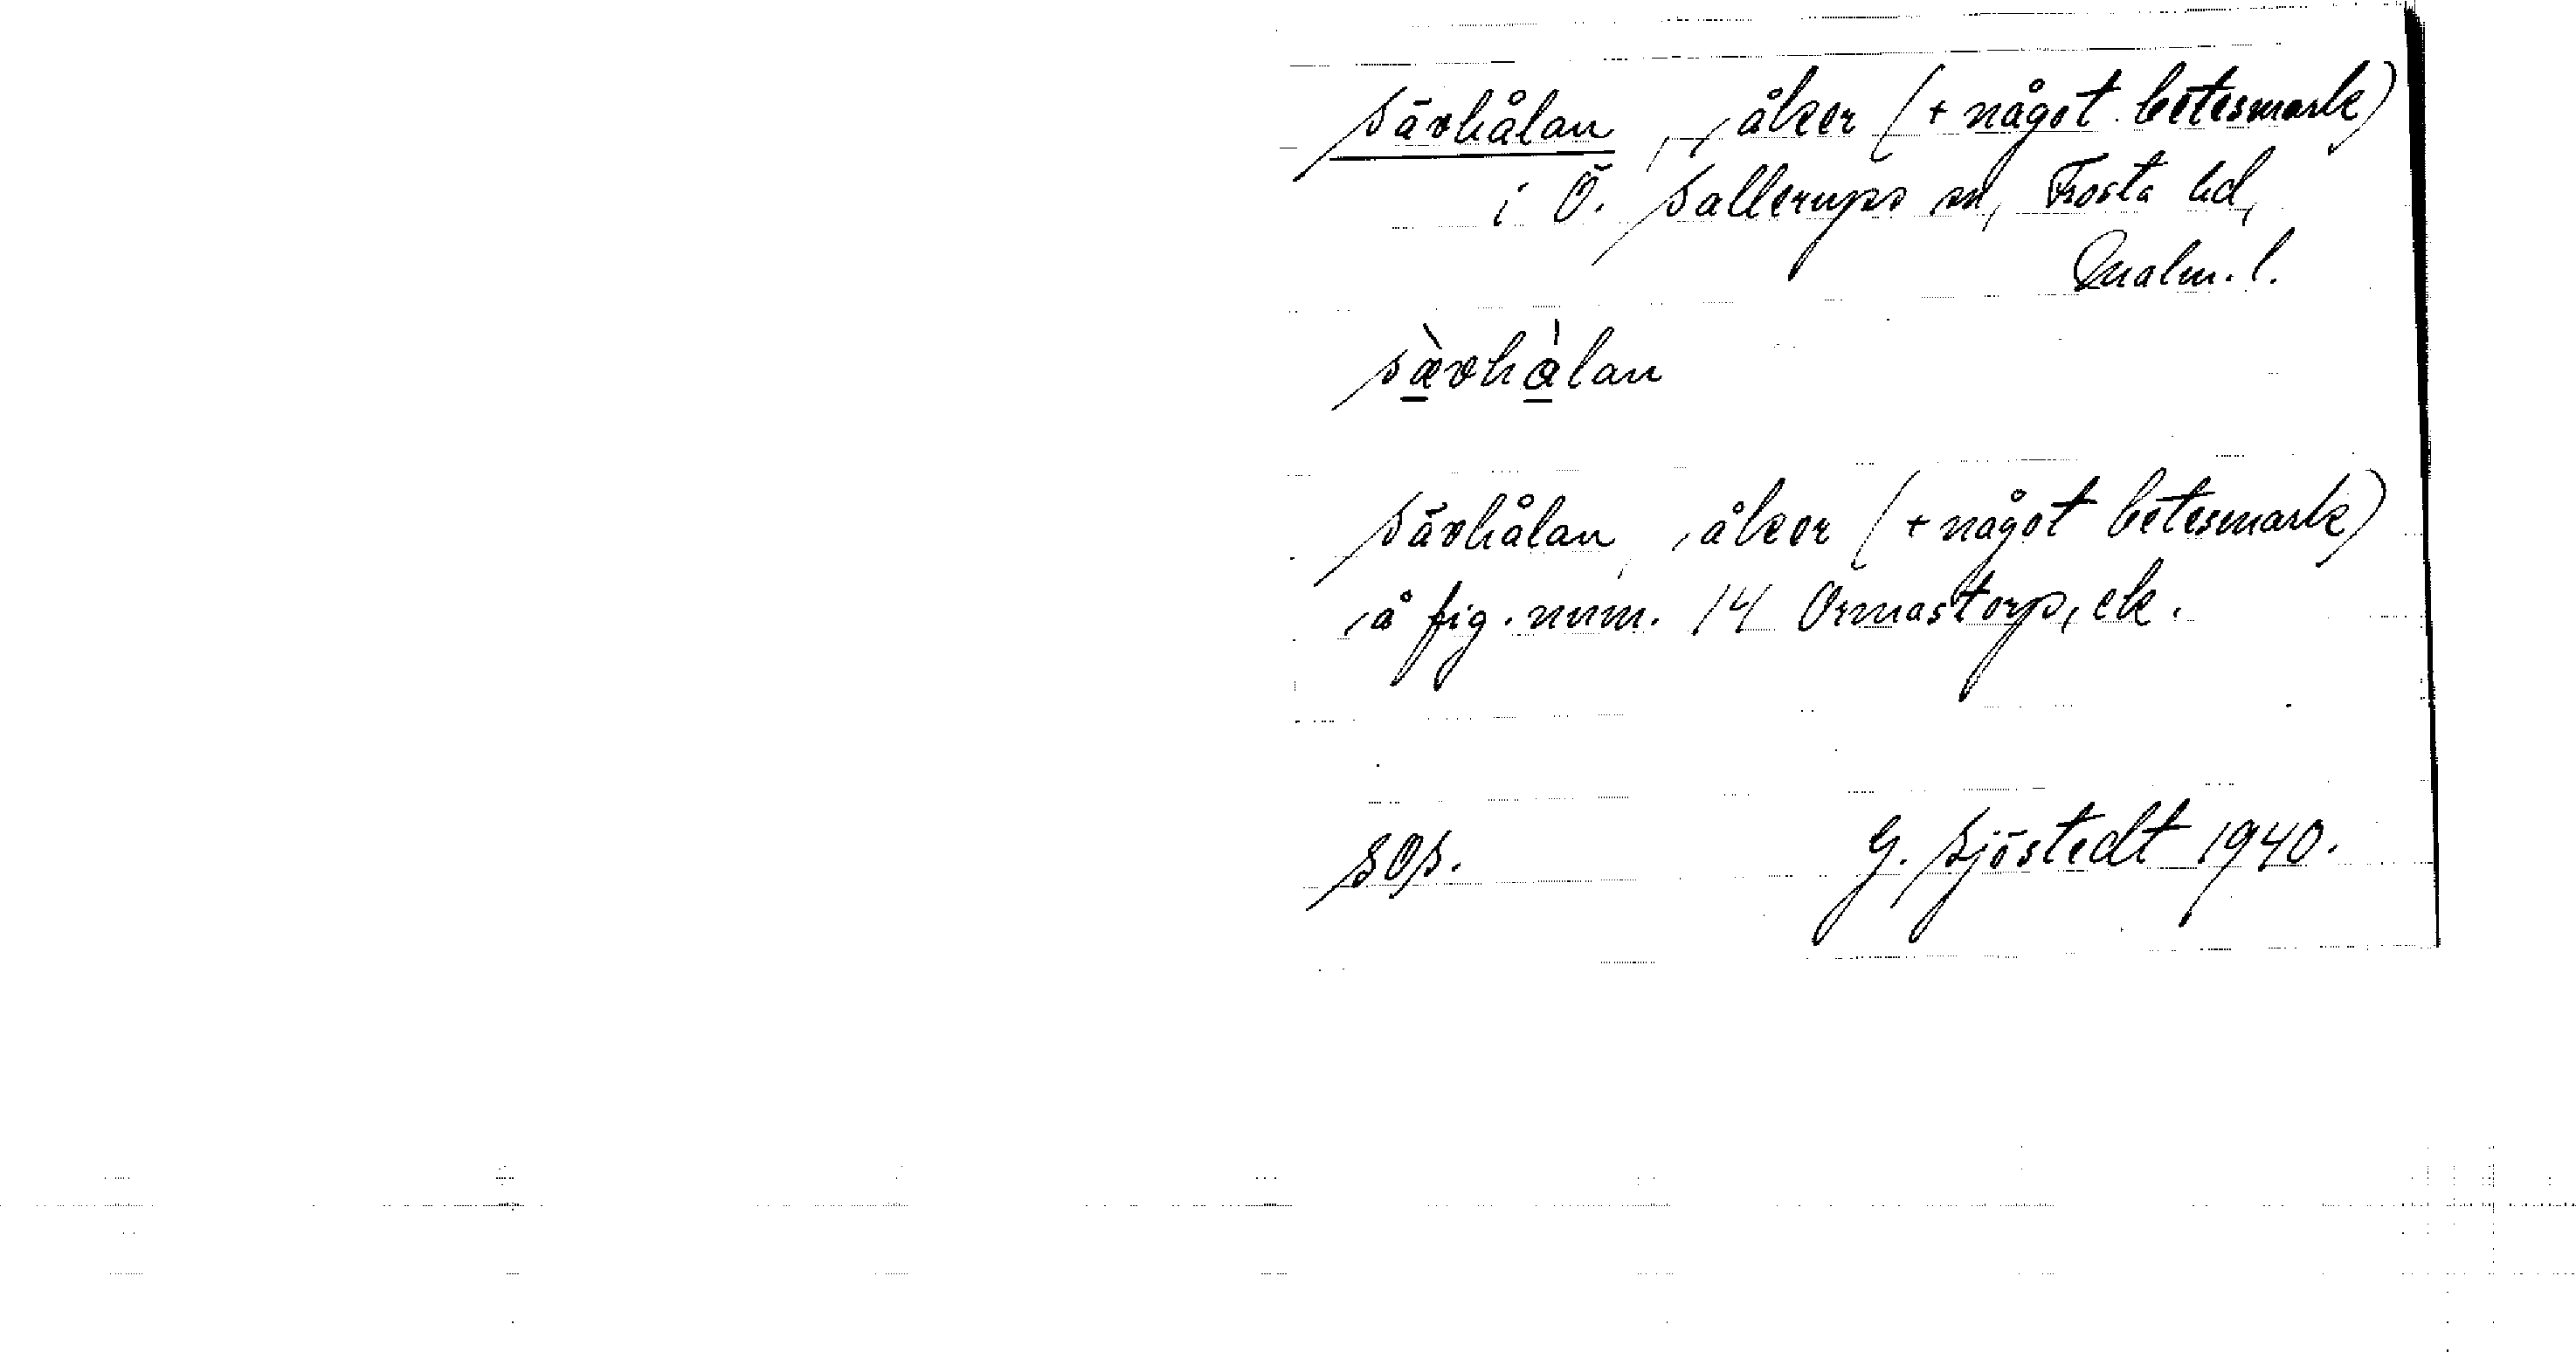 Sävhålan, åker (+ något betesmark)
i Ö. Sallerups sn, Frosta hd,
Malm. l.
sæ̀vhàlan
Sävhålan, åker (+ något betesmark)
å fig. num. 14 Ormastorp, ek.
SOS.
G. Sjöstedt 1940.